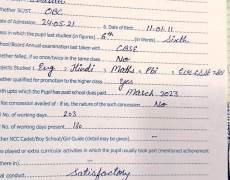 whether SC/ST. OBC
Date of Admission 24.05.21 6. Date of Birth 11.01.11
in which the pupil last studied (in figures) 6th (in Words) Sixth
School/Board Annual examination last taken with CBSE
ether failed, if so once/twice in the same class No
Subjects Studied : Eng, Hindi, Maths, Pbi,
ether qualified for promotion to the higher class Yes
th upto which the Pupil has paid school dues paid March 2023
fee concession availed of : If so, the nature of the concession No
No. of working days 203
No. of working days present 180
ether NCC Cadet/Boy Scout/Girl Guide (detail may be given)
es played or extra curricular activities in which the pupil usually took part (mentioned achievement
here in)
al conduct Satisfactory